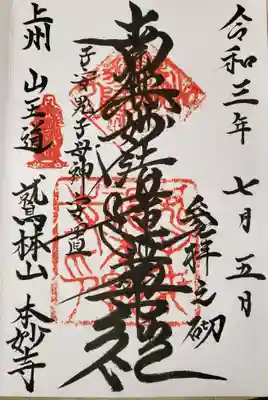 令和三年 七月 五日
参拝之砌
南無妙法蓮華経
子安鬼子母神
上州 山王道
鷲林山 本妙寺